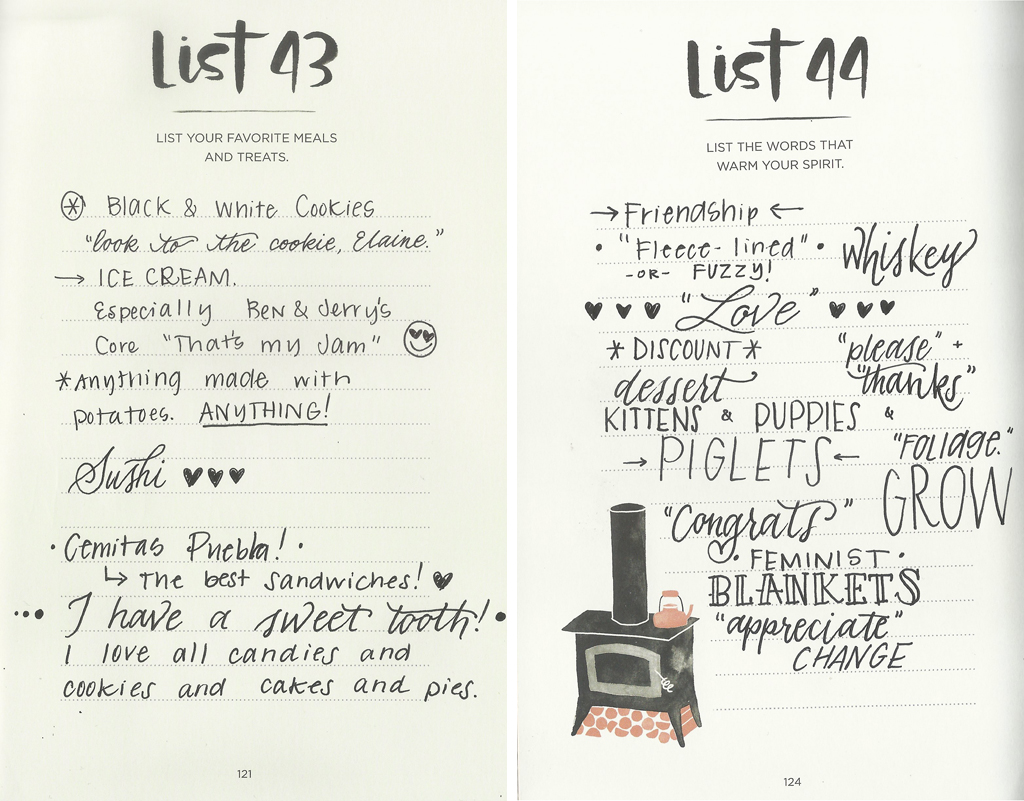 List 43
LIST YOUR FAVORITE MEALS
AND TREATS.
Black & White Cookies
"look to the cookie, Elaine."
→ ICE CREAM.
Especially Ben & Jerry's
Core "That's my Jam"
*Anything made with
potatoes. ANYTHING!
Sushi ♥♥♥
• Cemitas Puebla! •
↳ The best sandwiches! ♥
...• I have a sweet tooth! •
I love all candies and
cookies and cakes and pies.
121
List 44
LIST THE WORDS THAT
WARM YOUR SPIRIT.
→ Friendship ←
• "Fleece-lined" • whiskey
-OR- FUZZY!
♥ ♥ ♥ "Love" ♥ ♥ ♥
* DISCOUNT * "please" +
dessert "thanks"
KITTENS & PUPPIES &
→ PIGLETS ← "FOLIAGE."
GROW
"Congrats"
• FEMINIST •
BLANKETS
"appreciate"
CHANGE
124